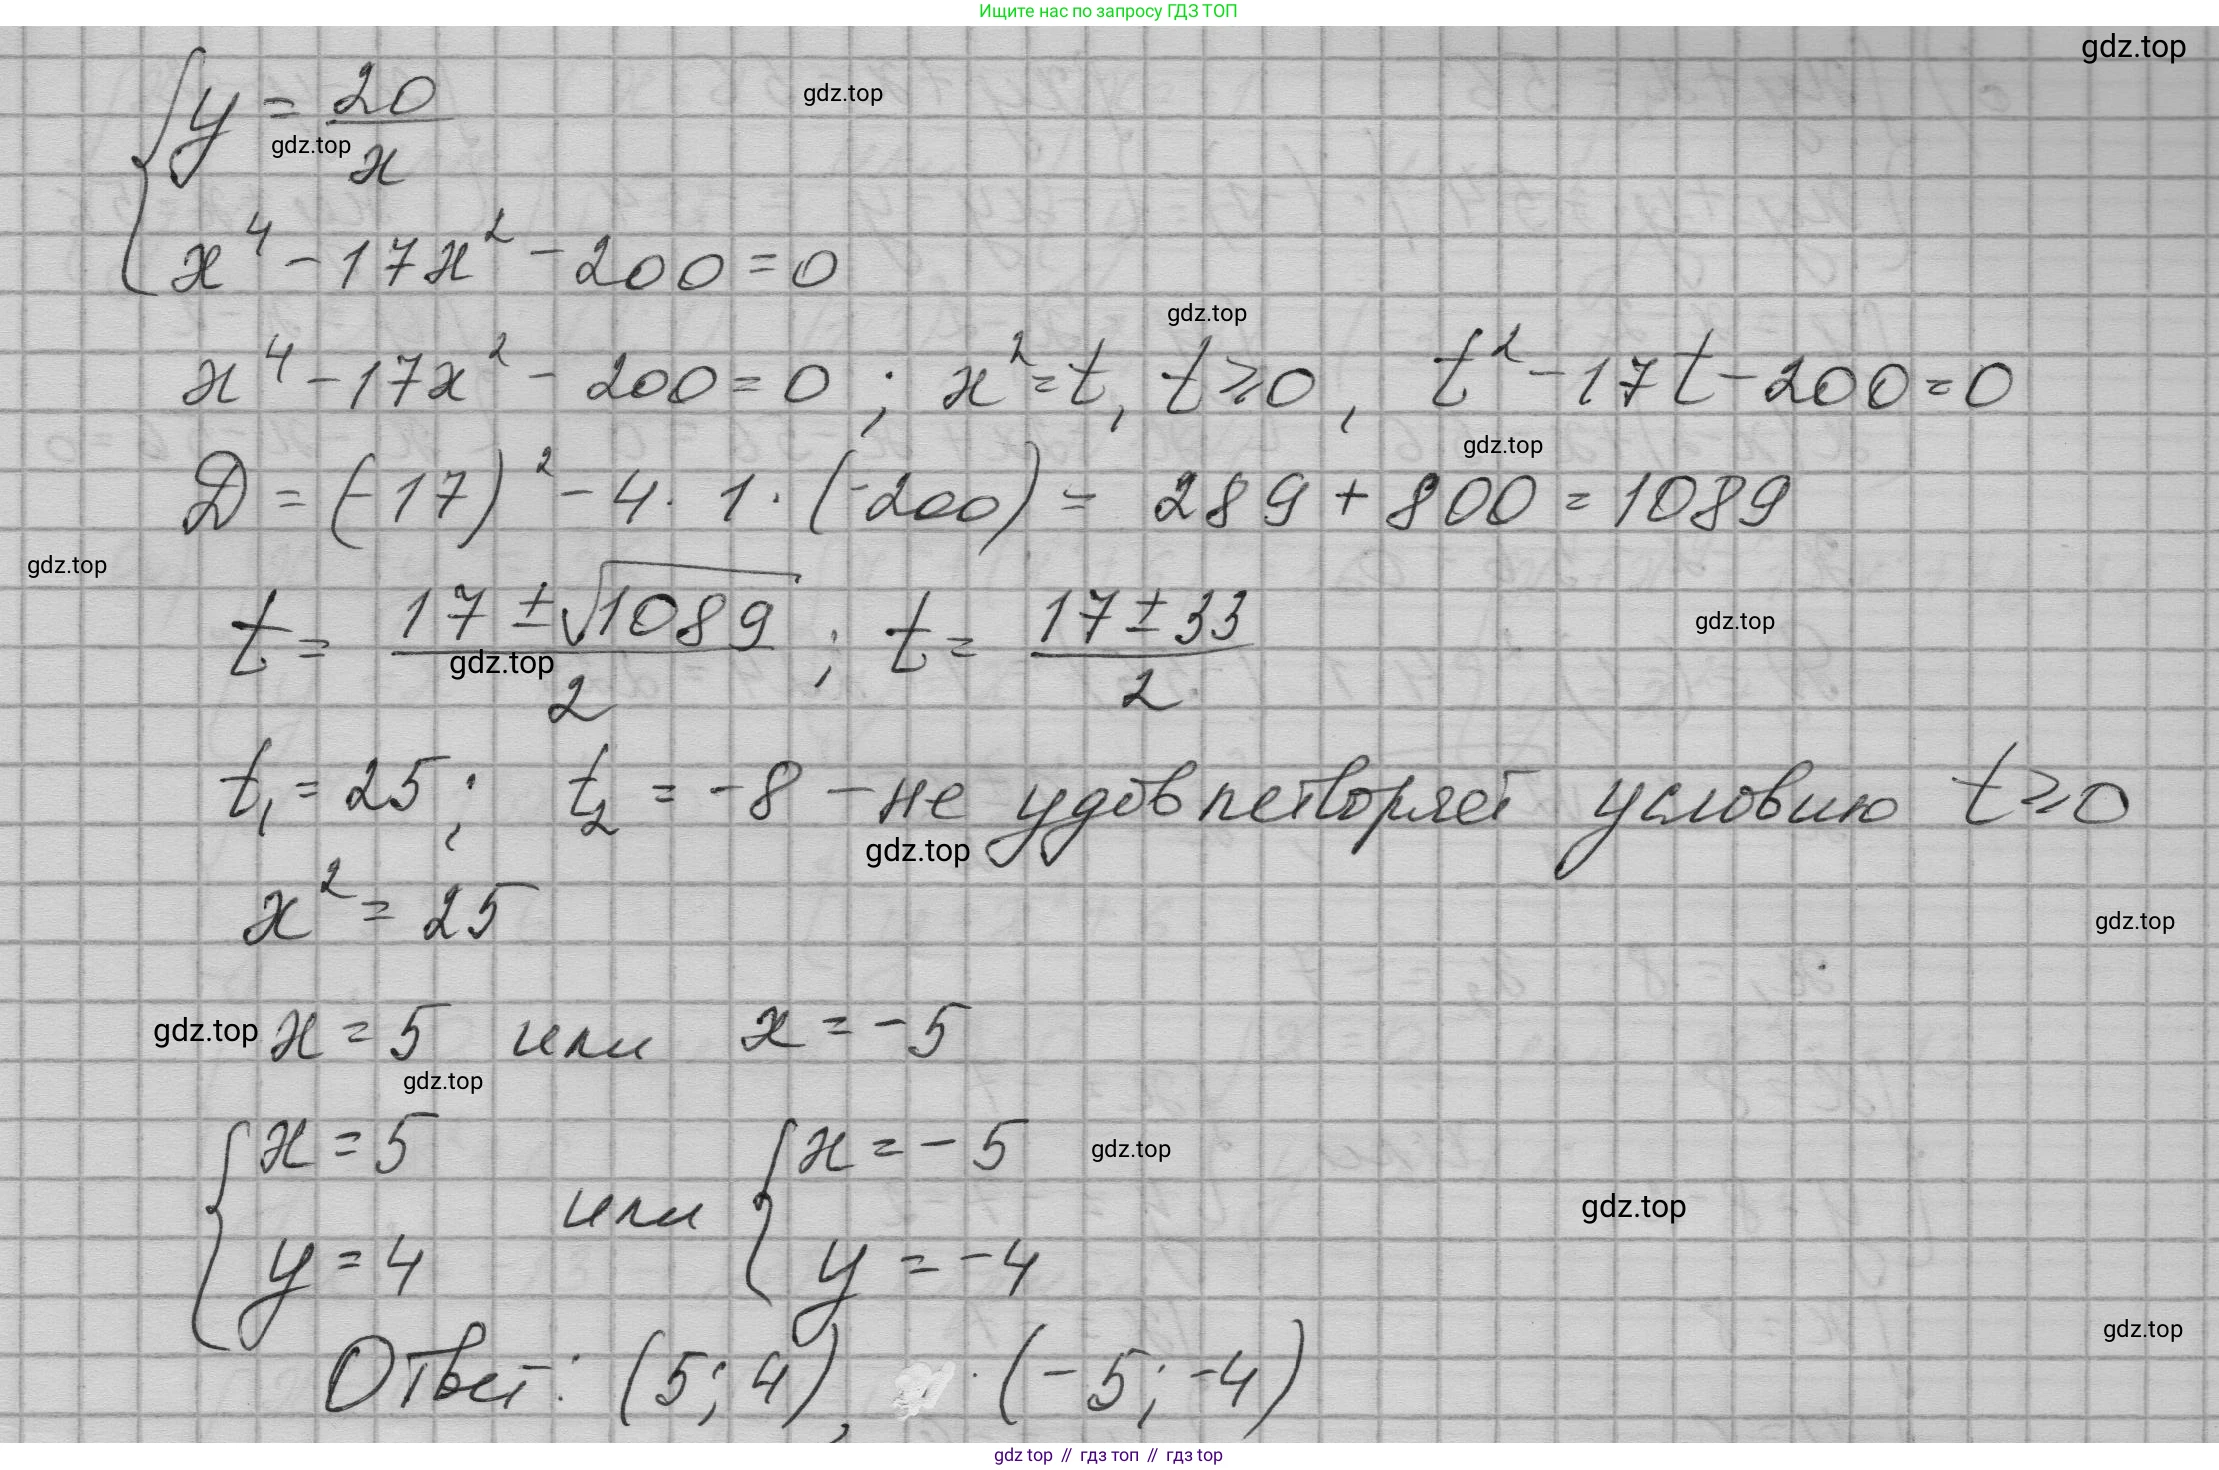 Ищите нас по запросу ГДЗ ТОП
gdz.top
gdz.top
y = 20/x
gdz.top
x⁴ - 17x² - 200 = 0
gdz.top
x⁴ - 17x² - 200 = 0 ; x² = t, t ⩾ 0, t² - 17t - 200 = 0
gdz.top
D = (-17)² - 4 · 1 · (-200) = 289 + 800 = 1089
gdz.top
t = (17 ± √1089)/2 ; t = (17 ± 33)/2
gdz.top
gdz.top
t₁ = 25 ; t₂ = -8 - не удовлетворяет условию t ⩾ 0
gdz.top
x² = 25
gdz.top
gdz.top
x = 5 или x = -5
gdz.top
{x = 5 y = 4 или {x = -5 y = -4
gdz.top
gdz.top
gdz.top
Ответ: (5; 4), (-5; -4)
gdz top // гдз топ // гдз top